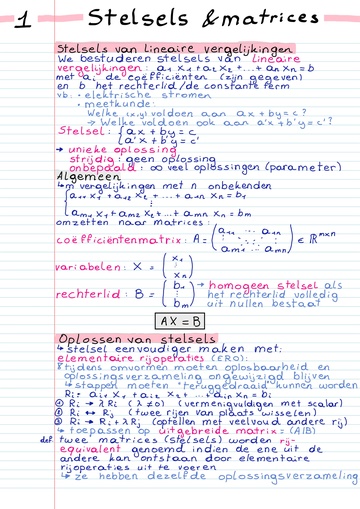 1 Stelsels & matrices
Stelsels van lineaire vergelijkingen
We bestuderen stelsels van lineaire
vergelijkingen: a₁ x₁ + a₂ x₂ + ... + aₙ xₙ = b
met aᵢ de coëfficiënten (zijn gegeven)
en b het rechterlid/de constante term
vb: • elektrische stromen
• meetkunde:
Welke (x,y) voldoen aan ax + by = c?
→ Welke voldoen ook aan a'x + b'y = c'?
Stelsel: { ax + by = c
a'x + b'y = c'
→ unieke oplossing
strijdig: geen oplossing
onbepaald: ∞ veel oplossingen (parameter)
Algemeen
↳ m vergelijkingen met n onbekenden
{ a₁₁ x₁ + a₁₂ x₂ + ... + a₁ₙ xₙ = b₁
⋮
aₘ₁ x₁ + aₘ₂ x₂ + ... + aₘₙ xₙ = bₘ
omzetten naar matrices:
coëfficiëntenmatrix: A = ( a₁₁ ... a₁ₙ ⋮ ⋱ ⋮ aₘ₁ ... aₘₙ ) ∈ ℝᵐˣⁿ
variabelen: X = ( x₁ ⋮ xₙ )
rechterlid: B = ( b₁ ⋮ bₘ ) → homogeen stelsel als
het rechterlid volledig
uit nullen bestaat
AX = B
Oplossen van stelsels
↳ stelsel eenvoudiger maken met:
elementaire rijoperaties (ERO):
! tijdens omvormen moeten oplosbaarheid en
oplossingsverzameling ongewijzigd blijven
↳ stappen moeten "teruggedraaid" kunnen worden
Rᵢ: aᵢ₁ x₁ + aᵢ₂ x₂ + ... aᵢₙ xₙ = bᵢ
① Rᵢ → λRᵢ (λ≠0) (vermenigvuldigen met scalar)
② Rᵢ ↔ Rⱼ (twee rijen van plaats wisselen)
③ Rᵢ → Rᵢ + λRⱼ (optellen met veelvoud andere rij)
↳ toepassen op uitgebreide matrix = (A|B)
def. twee matrices (stelsels) worden rij-
equivalent genoemd indien de ene uit de
andere kan ontstaan door elementaire
rijoperaties uit te voeren
↳ ze hebben dezelfde oplossingsverzameling